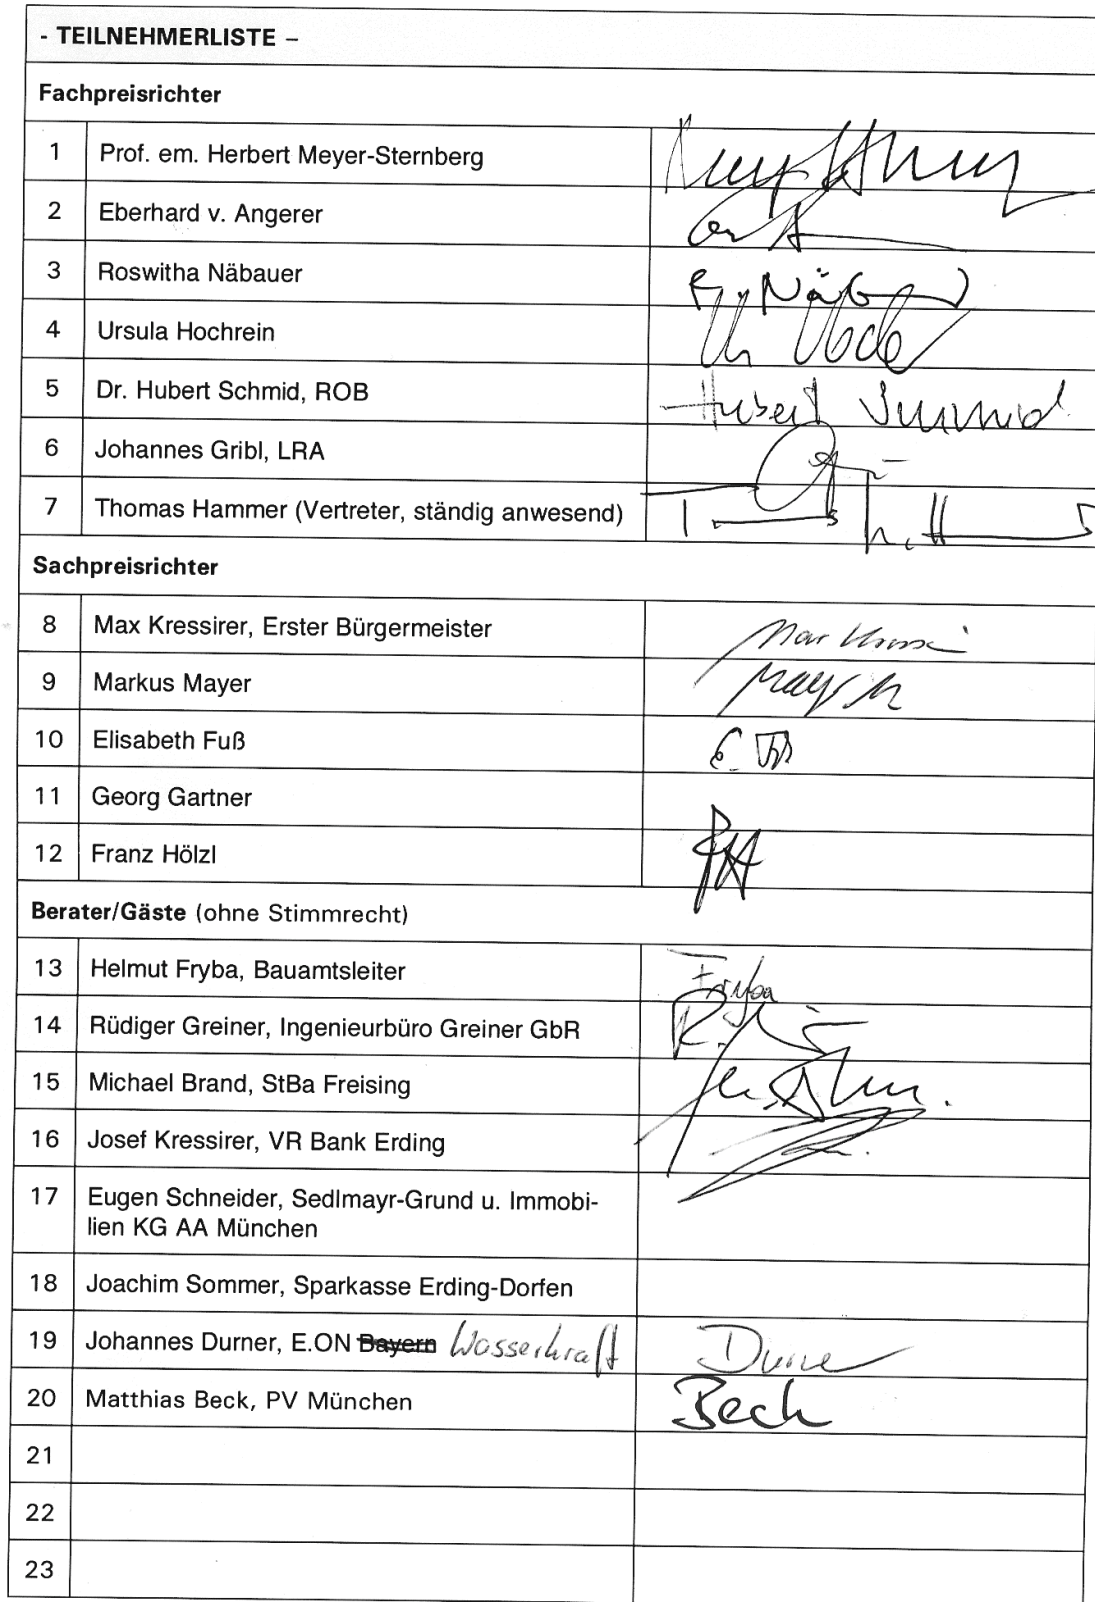 - TEILNEHMERLISTE –
Fachpreisrichter
1 Prof. em. Herbert Meyer-Sternberg
2 Eberhard v. Angerer
3 Roswitha Näbauer
4 Ursula Hochrein
5 Dr. Hubert Schmid, ROB Hubert Schmid
6 Johannes Gribl, LRA
7 Thomas Hammer (Vertreter, ständig anwesend)
Sachpreisrichter
8 Max Kressirer, Erster Bürgermeister
9 Markus Mayer
10 Elisabeth Fuß
11 Georg Gartner
12 Franz Hölzl
Berater/Gäste (ohne Stimmrecht)
13 Helmut Fryba, Bauamtsleiter Fryba
14 Rüdiger Greiner, Ingenieurbüro Greiner GbR
15 Michael Brand, StBa Freising
16 Josef Kressirer, VR Bank Erding
17 Eugen Schneider, Sedlmayr-Grund u. Immobi-
lien KG AA München
18 Joachim Sommer, Sparkasse Erding-Dorfen
19 Johannes Durner, E.ON Bayern Wasserkraft Durner
20 Matthias Beck, PV München Beck
21
22
23